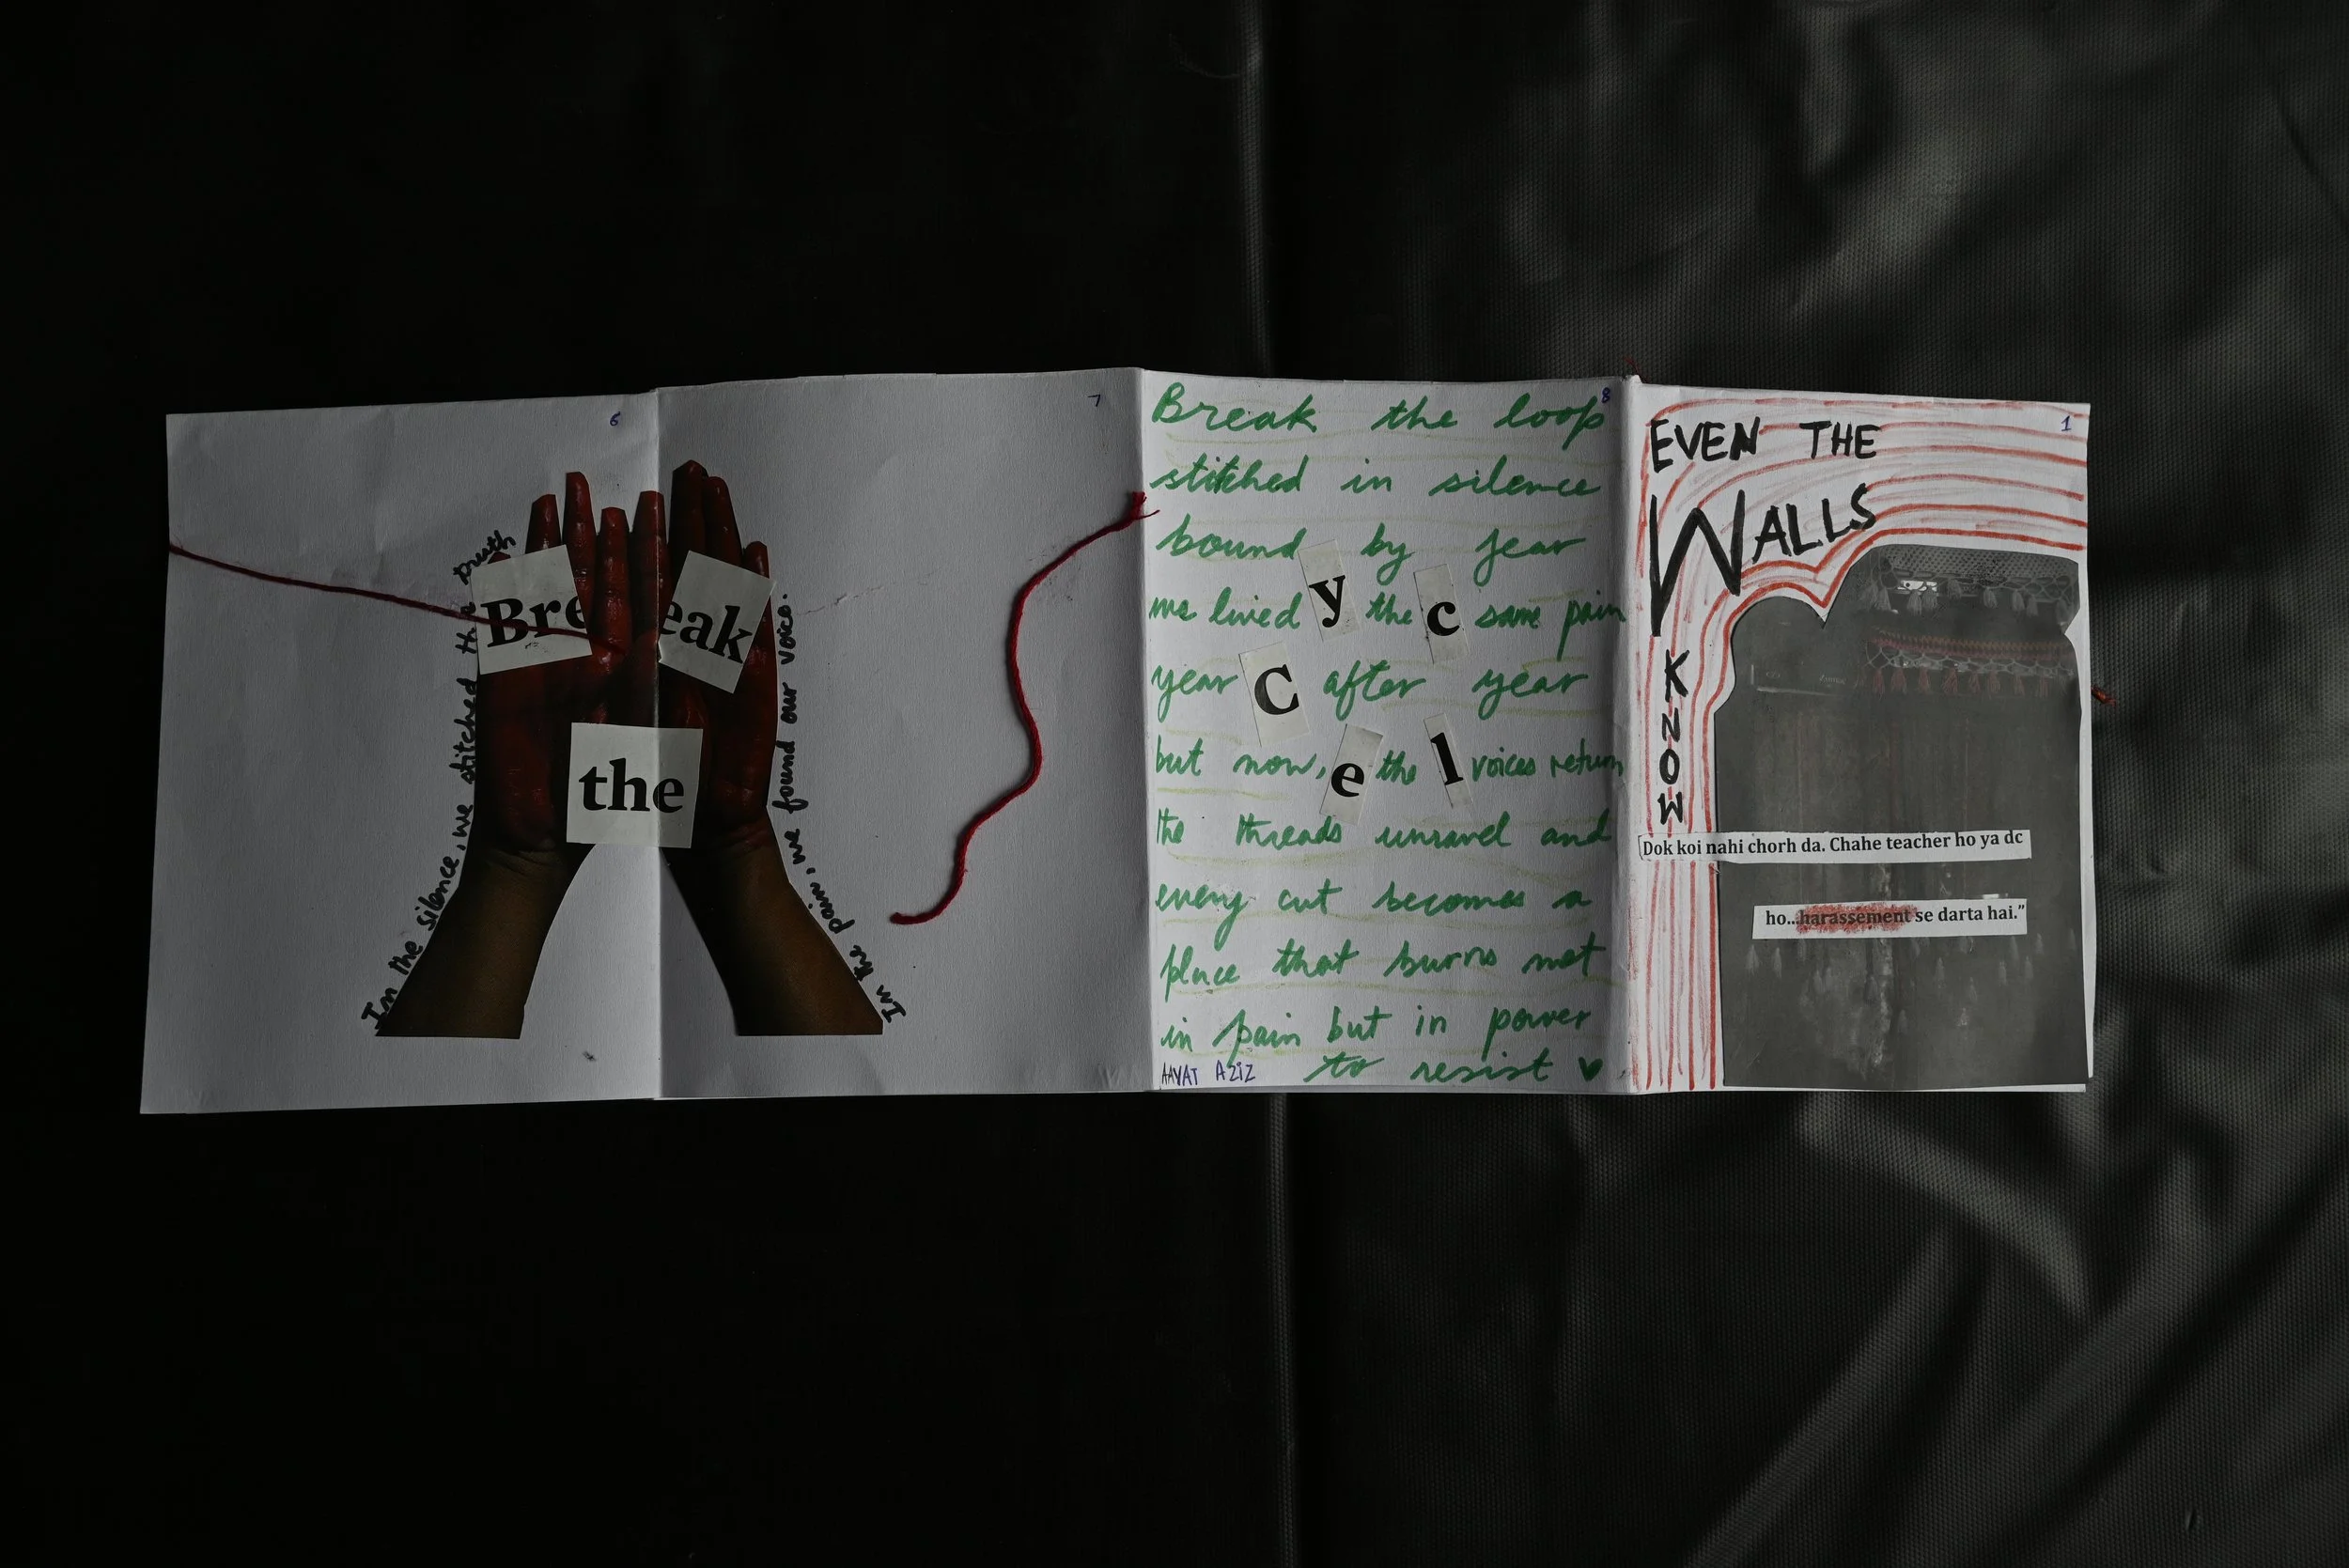 6
In the silence, we stitched the truth
Bre eak
the
In the pain, we found our voice.
7
8
Break the loop
stitched in silence
bound by fear
we lived the same pain
year after year
but now, the voices return
the threads unravel and
every cut becomes a
place that burns not
in pain but in power
to resist
y c
C
e l
AAYAT AZIZ
1
EVEN THE
WALLS
KNOW
Dok koi nahi chorh da. Chahe teacher ho ya dc
ho...harassement se darta hai.”